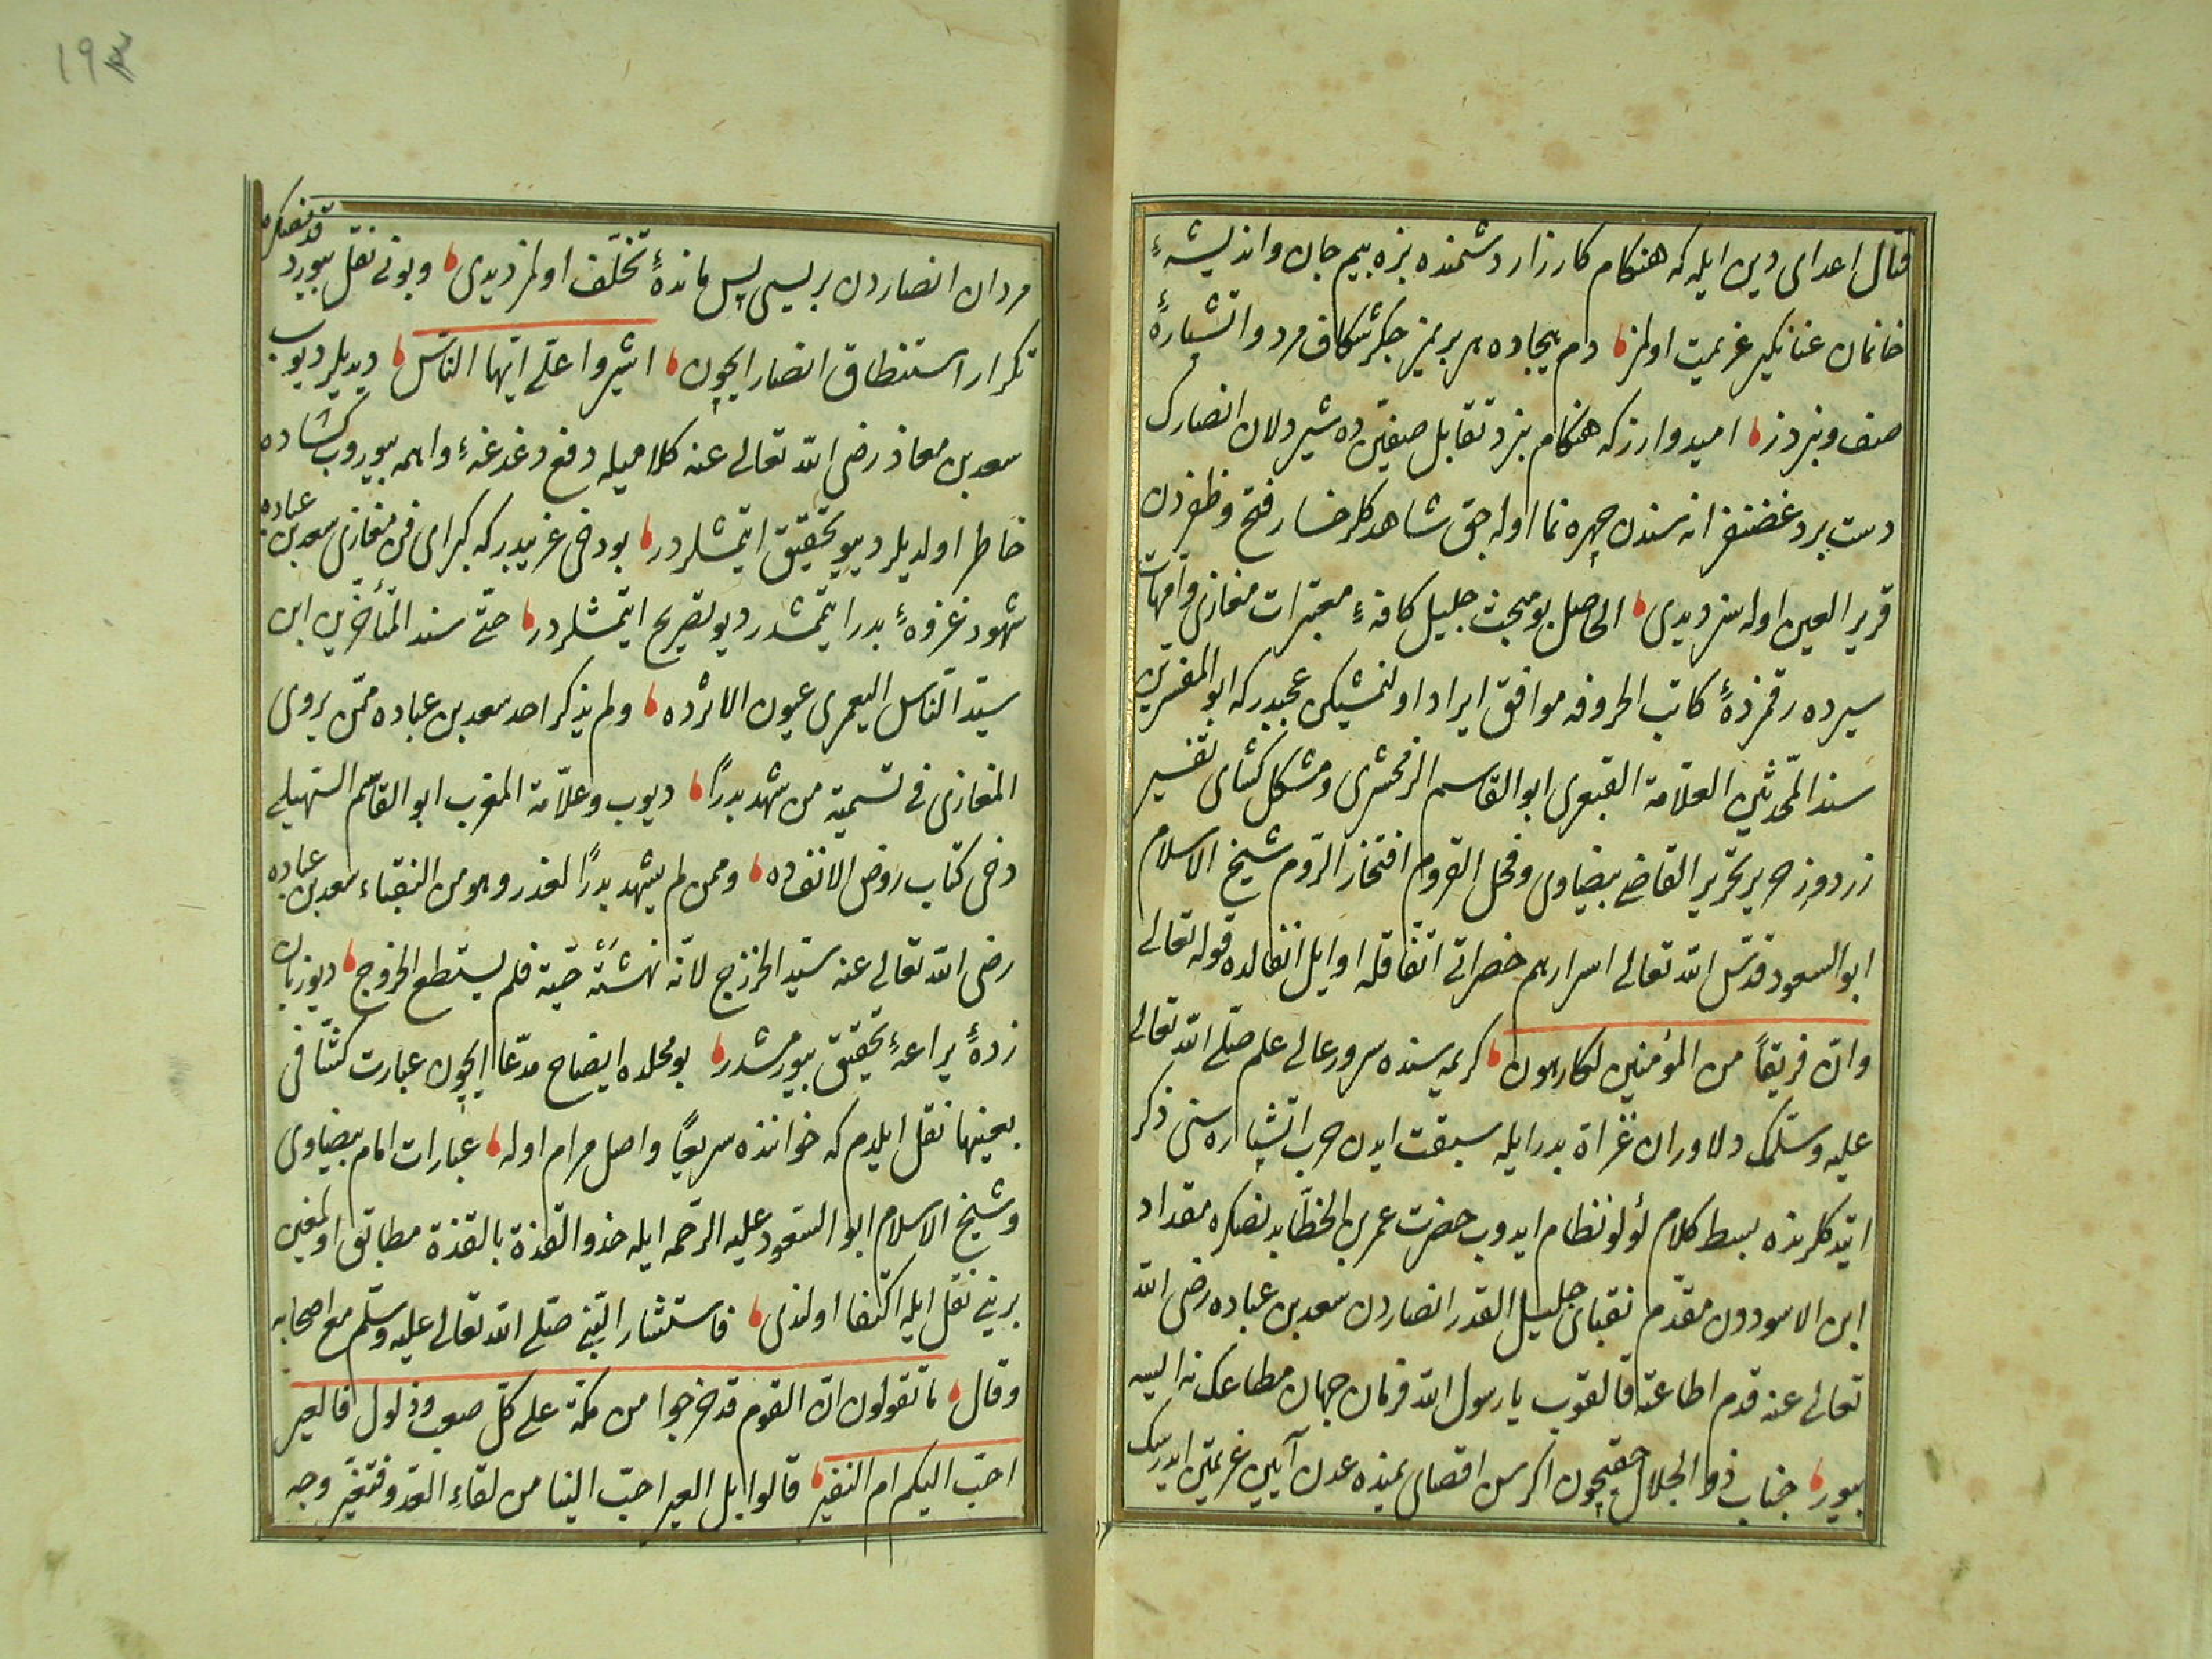 قتال اعدای دین ایله که هنکام کارزار دشمنده بزه بیم جان و اندیشهٔ
خانمان عنانکیر عزیمت اولمز دم هیجاده هر بریمز جکرشکاف مرد و آتشپارهٔ
صف نبردز امیدوارز که هنکام نبرد تقابل صفینده شیردلان انصارک
دست برد غضنفرانه سندن چهره نما اوله جق شاهد کلرخسار فتح و ظفردن
قریر العین اوله سز دیدی الحاصل بو مبحث جلیل کافهٔ معتبرات مغازی و امهات
سیرده رقمزدهٔ کاتب الحروفه موافق ایراد اولنمشیکن عجبدر که ابو المفسرین
سند المحدثین العلامة العبقری ابو القاسم الزمخشری و مشکل کشای تفسیر
زردوز حریر تحریر القاضی بیضاوی و فحل القروم افتخار الروم شیخ الاسلام
ابو السعود قدس الله تعالی اسرارهم حضراتی اتفاقله اوایل انفالده قوله تعالی
وان فریقاً من المؤمنین لکارهون کریمه سنده سرور عالی علم صلی الله تعالی
علیه وسلمک دلاوران غزاة بدر ایله سبقت ایدن حرب آتشپاره سنی ذکر
ایتدکلرنده بسط کلام لؤلؤ نظام ایدوب حضرت عمر بن الخطابدنصکره مقداد
ابن الاسوددن مقدم نقبای جلیل القدر انصاردن سعد بن عباده رضی الله
تعالی عنه قدم اطاعته قالقوب یا رسول الله فرمان جهان مطاعک نه ایسه
بیور جناب ذو الجلال حقیچون اکر سن اقصای یمنده عدن آبین عزیمتن ایدرسک
مردان انصاردن بریسی پس ماندهٔ تخلف اولمز دیدی و بونی نقل بیوردقدنصکره
تکرار استنطاق انصار ایچون اشیروا علی ایها الناس دیدیلر دیوب
سعد بن معاذ رضی الله تعالی عنه کلامیله دفع دغدغهٔ واهمه بیوروب کشاده
خاطر اولدیلر دیو تحقیق ایتمشلردر بو دخی غریبدر که کبرای فن مغازی سعد بن عباده
شهود غزوهٔ بدر ایتمشدر دیو تصریح ایتمشلردر حتی سند المتأخرین ابن
سید الناس الیعمری عیون الاثرده ولم یذکر احد سعد بن عباده ممن یروی
المغازی فی تسمیة من شهد بدراً دیوب و علامة المغرب ابو القاسم السهیلی
دخی کتاب روض الانفده وممن لم یشهد بدراً لعذر وهو من النقباء سعد بن عباده
رضی الله تعالی عنه سید الخزرج لانه نهشته حیة فلم یستطع الخروج دیو زبان
زدهٔ یراعهٔ تحقیق بیورمشدر بو محلده ایضاح مدعا ایچون عبارت کشافی
بعینها نقل ایلدم که خواننده سریعاً واصل مرام اوله عبارات امام بیضاوی
و شیخ الاسلام ابو السعود علیه الرحمه ایله حذو القذة بالقذة مطابق اولمغین
برینی نقل ایله اکتفا اولندی فاستشار النبی صلی الله تعالی علیه وسلم مع اصحابه
وقال ما تقولون ان القوم قد خرجوا من مکة علی کل صعب وذلول فالعیر
احب الیکم ام النفیر قالوا بل العیر احب الینا من لقاء العدو فتغیر وجه